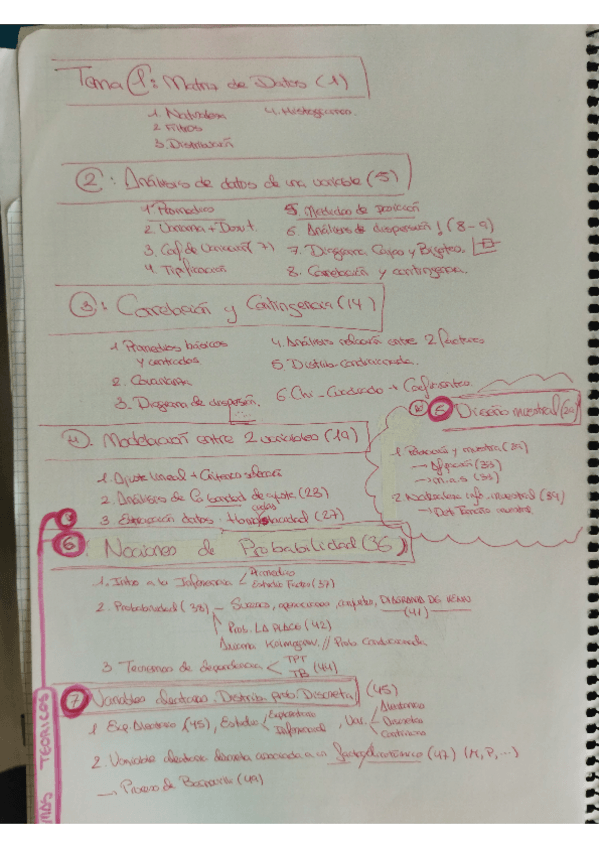 Tema 1: Matriz de Datos (1)
1. Naturaleza
2. Filtros
3. Distribución
4. Histogramas.
2: Análisis de datos de una variable (5)
1. Promedio
2. Varianza + Desv t.
3. Coef de Variación (7)
4. Tipificación
5. Medidas de posición
6. Análisis de dispersión! (8-9)
7. Diagrama Cajas y Bigotes.
8. Correlación y contingencia.
3: Correlación y Contingencia (14)
1. Promedios básicos
y centrados
2. Covarianza
3. Diagrama de dispersión.
4. Análisis relación entre 2 factores
5. Distrib. condicionada.
6. Chi-Cuadrado → Coeficientes.
4. Modelación entre 2 variables (19)
1. Ajuste lineal + Criterios selección
2. Análisis de la bondad de ajuste. (23)
3. Extracción datos. Homogeneidad (27)
5 Diseño muestral (29)
1. Población y muestra (29)
→ Afijación (33)
→ m.a.s (33)
2. información muestral (34)
→ Tamaño muestra
6: Nociones de Probabilidad (36)
1. Intro a la Inferencia < Promedio
Estudio Factor (37)
2. Probabilidad (38) – Sucesos, operaciones, conjuntos, DIAGRAMA DE VENN
(41)
Prob. LA PLACE (42)
Axioma Kolmogorov // Prob Condicionada
3. Teoremas de dependencia < TPT
TB (44)
7 Variables aleatorias. Distrib. prob. Discreta (45)
1. Exp. Aleatorio (45), Estudio < Exploratorio
Inferencial, Var. < Aleatoria
Discreta
Continua
2. Variable aleatoria discreta asociada a un factor dicotómico (47) (M, P, ...)
→ Proceso de Bernoulli (49)
TEORICOS